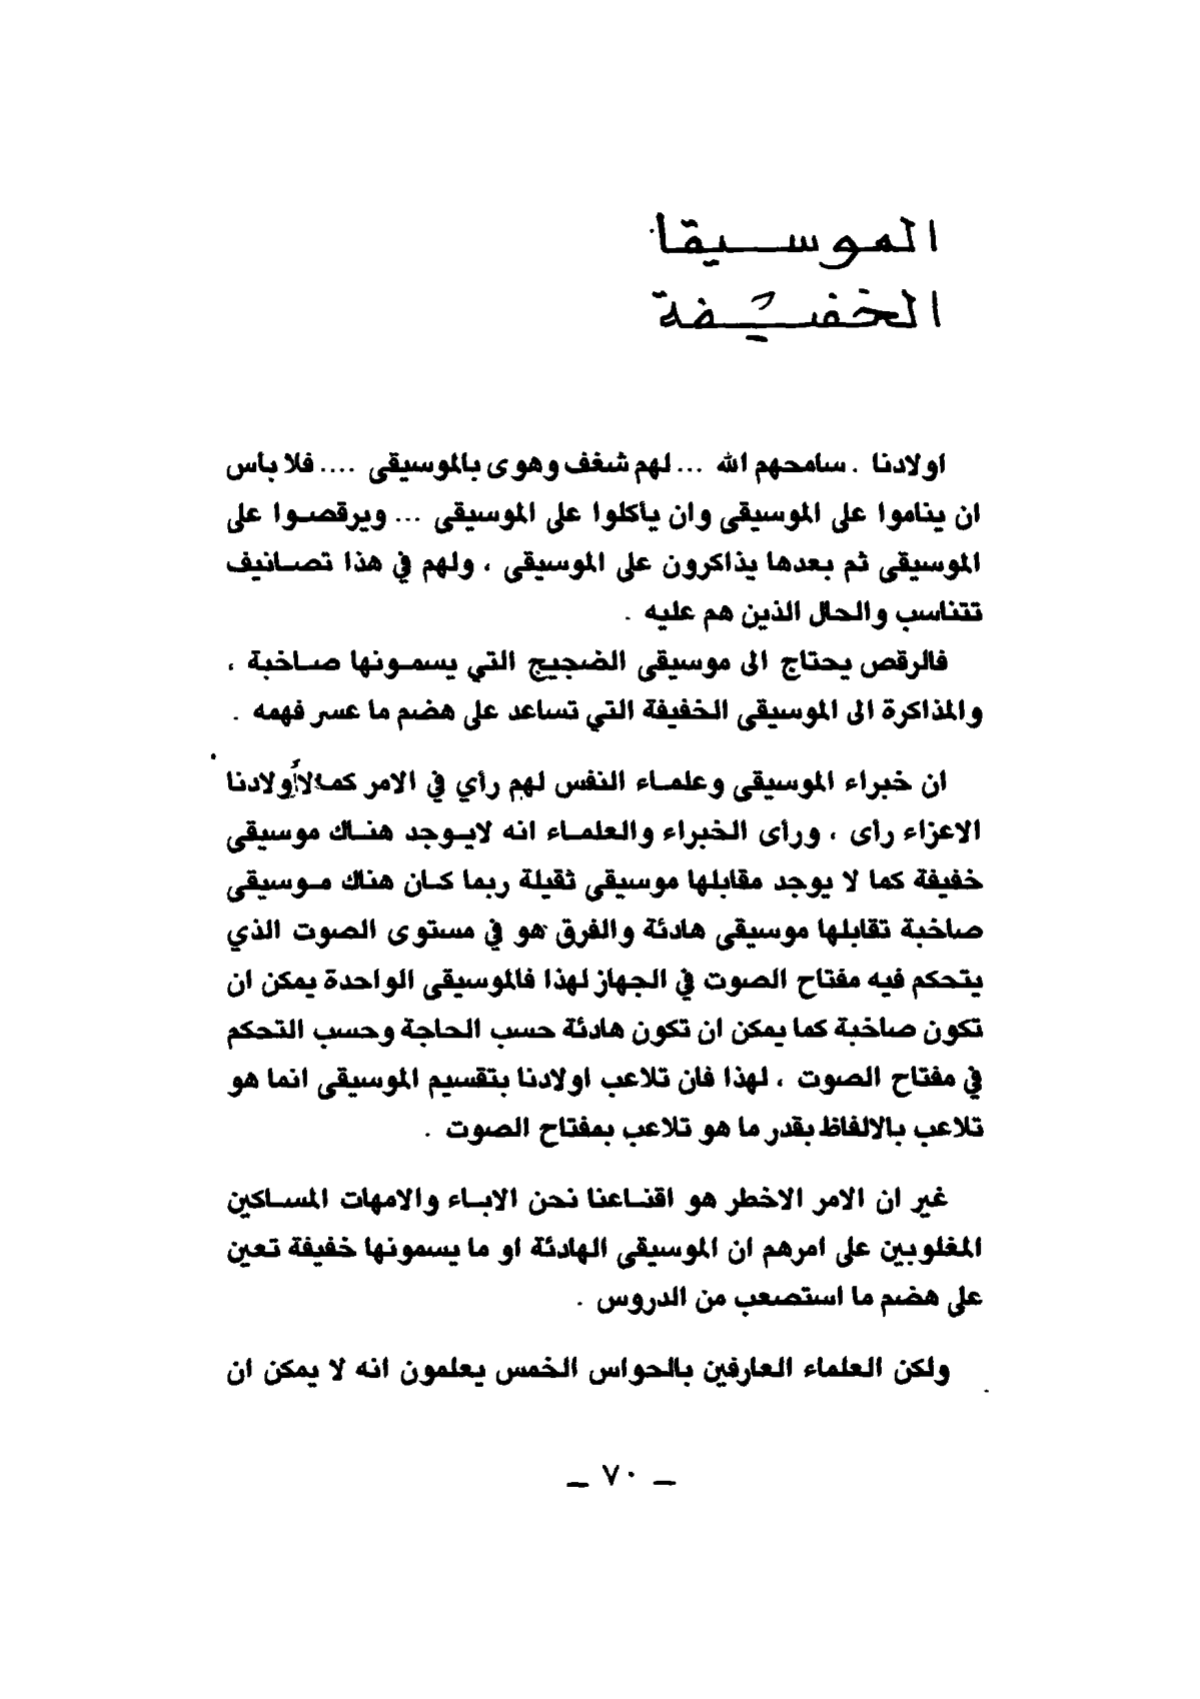 الموسيقا
الخفيفة
اولادنا . سامحهم الله ... لهم شغف وهوى بالموسيقى .... فلا بأس
ان يناموا على الموسيقى وان يأكلوا على الموسيقى ... ويرقصوا على
الموسيقى ثم بعدها يذاكرون على الموسيقى ، ولهم في هذا تصانيف
تتناسب والحال الذين هم عليه .
فالرقص يحتاج الى موسيقى الضجيج التي يسمونها صاخبة ،
والمذاكرة الى الموسيقى الخفيفة التي تساعد على هضم ما عسر فهمه .
ان خبراء الموسيقى وعلماء النفس لهم رأي في الامر كما لأولادنا
الاعزاء رأى ، ورأى الخبراء والعلماء انه لايوجد هناك موسيقى
خفيفة كما لا يوجد مقابلها موسيقى ثقيلة ربما كان هناك موسيقى
صاخبة تقابلها موسيقى هادئة والفرق هو في مستوى الصوت الذي
يتحكم فيه مفتاح الصوت في الجهاز لهذا فالموسيقى الواحدة يمكن ان
تكون صاخبة كما يمكن ان تكون هادئة حسب الحاجة وحسب التحكم
في مفتاح الصوت ، لهذا فان تلاعب اولادنا بتقسيم الموسيقى انما هو
تلاعب بالالفاظ بقدر ما هو تلاعب بمفتاح الصوت .
غير ان الامر الاخطر هو اقناعنا نحن الاباء والامهات المساكين
المغلوبين على امرهم ان الموسيقى الهادئة او ما يسمونها خفيفة تعين
على هضم ما استصعب من الدروس .
ولكن العلماء العارفين بالحواس الخمس يعلمون انه لا يمكن ان
_ ٧٠ _